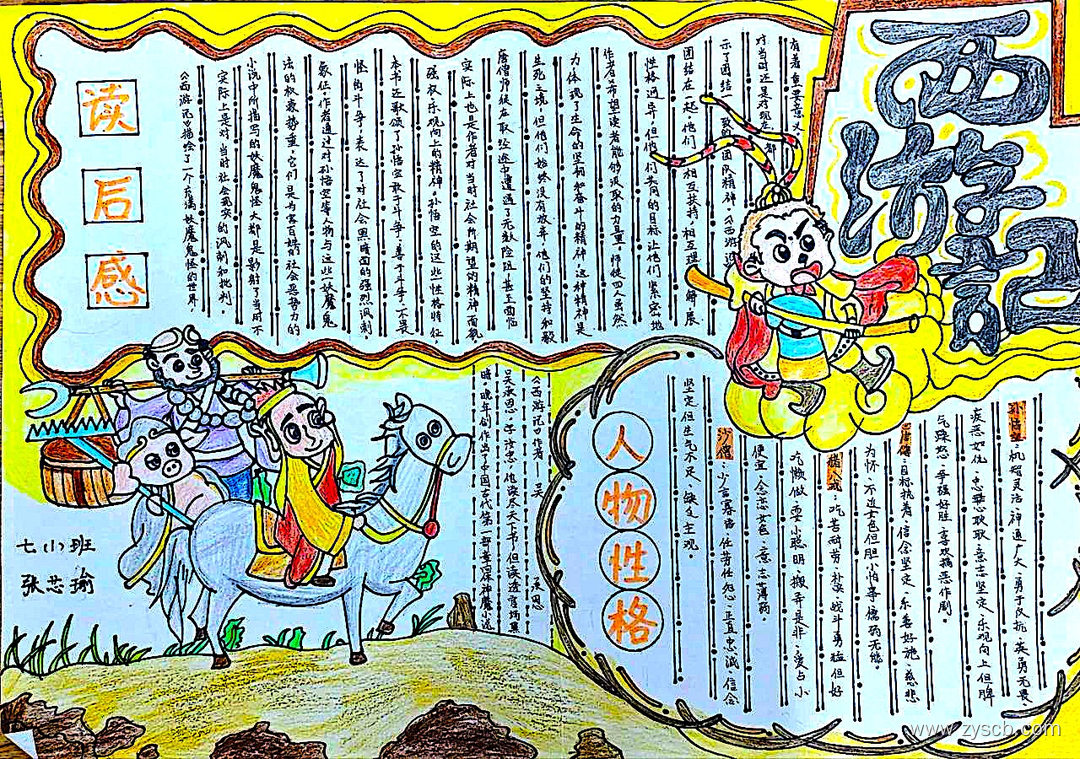 西游记
读后感
《西游记》描绘了一个充满妖魔鬼怪的世界,
实际上是对当时社会现实的讽刺和批判。
小说中所描写的妖魔鬼怪大都是影射了当时不
法的权豪势重,它们是与害百姓的社会恶势力的
象征,作者通过对孙悟空等人物与这些妖魔鬼
怪的斗争,表达了对社会黑暗面的强烈讽刺,
本书还歌颂了孙悟空敢于斗争、善于斗争、不畏
强权、乐观向上的精神,孙悟空的这些性格特征
实际上也是作者对当时社会所期望的精神面貌
唐僧师徒在取经途中遭遇了无数险阻,甚至面临
生死之境,但他们始终没有放弃,他们的坚持和毅
力体现了生命的坚韧和奋斗的精神,这种精神是
作者希望读者能够汲取的力量,师徒四人虽然
性格迥异,但他们共同的目标让他们紧密地
团结在一起,他们相互扶持、相互理解,展
示了团结一致的团队精神,《西游记
对当时还是对现在都
有着重要意义。
《西游记》作者——吴承恩
吴承恩,字汝忠,他
晚年创作出了中国古代第一部
神魔小说
人物性格
孙悟空:机智灵活、神通广大、勇于反抗、英勇无畏、
疾恶如仇、忠心耿耿、意志坚定、乐观向上但脾
气躁怒、争强好胜、喜欢搞恶作剧。
唐僧:目标执着、信念坚定、乐善好施、慈悲
为怀、不近女色但胆小怕事、懦弱无能。
猪八戒:吃苦耐劳、朴实、战斗勇猛但好
吃懒做、耍小聪明、搬弄是非、爱占小
便宜、念恋女色、意志薄弱。
沙僧:少言寡语、任劳任怨、正直忠诚、信念
坚定但生气不足、缺乏主观。
七(小)班
张芯瑜
www.zyscb.com